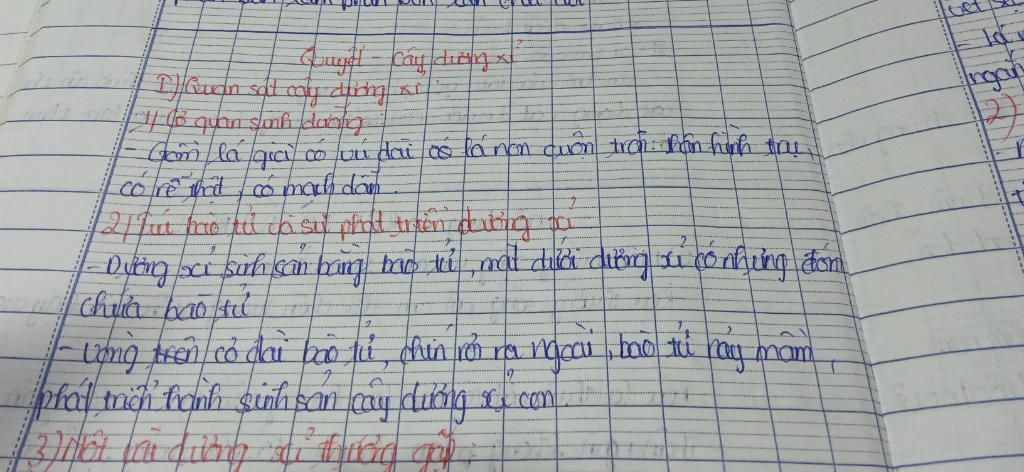 Quyết - Cây dương xỉ
I) Quan sát cây dương xỉ
1) Cơ quan sinh dưỡng:
- Gồm lá già có cuống dài có lá non cuộn tròn. thân hình trụ,
có rễ thật, có mạch dẫn.
2) Túi bào tử và sự phát triển dương xỉ
- Dương xỉ sinh sản bằng bào tử, mặt dưới dương xỉ có những đốm
chứa bào tử
- Vòng trên có dài bào tử, chín rơi ra ngoài, bào tử nảy mầm,
phát triển thành sinh sản cây dương xỉ con.
3) Một loài dương xỉ thường gặp:
cet
ngắn
2)